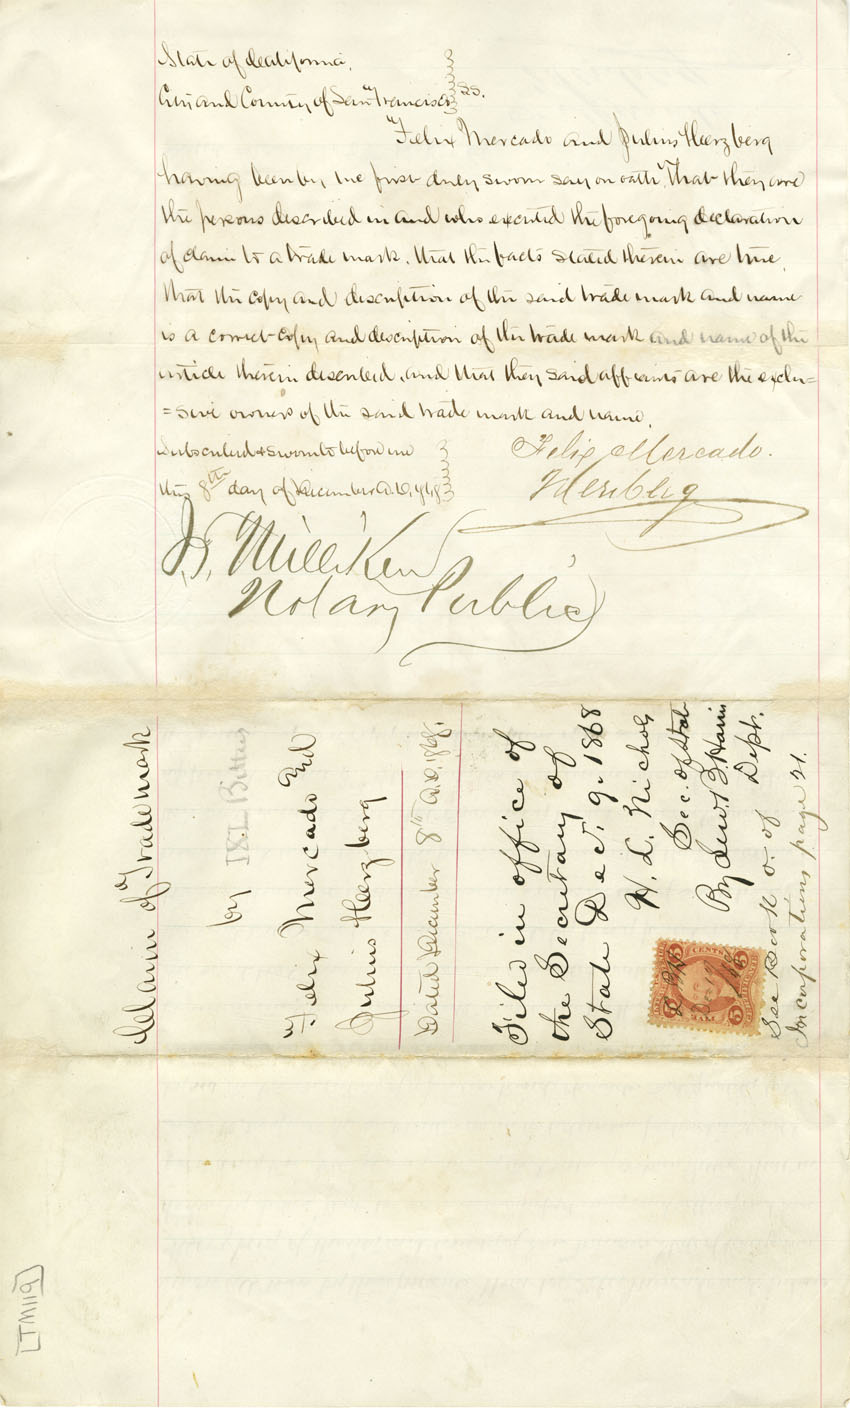 State of California,
City and County of San Francisco ss.
Felix Mercado and Julius Herzberg
having been by me first duly sworn say on oath, That they are
the persons described in and who executed the foregoing declaration
of claim to a trade mark, that the facts stated therein are true,
that the copy and description of the said trade mark and name
is a correct copy and description of the trade mark and name of the
article therein described, and that they said affiants are the exclu=
=sive owners of the said trade mark and name.
Subscribed & sworn to before me
this 8th day of December A.D.
Felix Mercado.
JHerzberg
Milliken
Notary Public
Claim of Trade mark
by IXL Bitters
Felix Mercado and
Julius Herzberg
Dated December 8th A.D. 1868.
Filed in office of
the Secretary of
State Dec. 9. 1868
H. L. Nichols
Sec. of State
By Lew. B. Harris
Dept.
See Book 0. of
Incorporations page 21.
5 CENTS 5
5 5
[TM119]